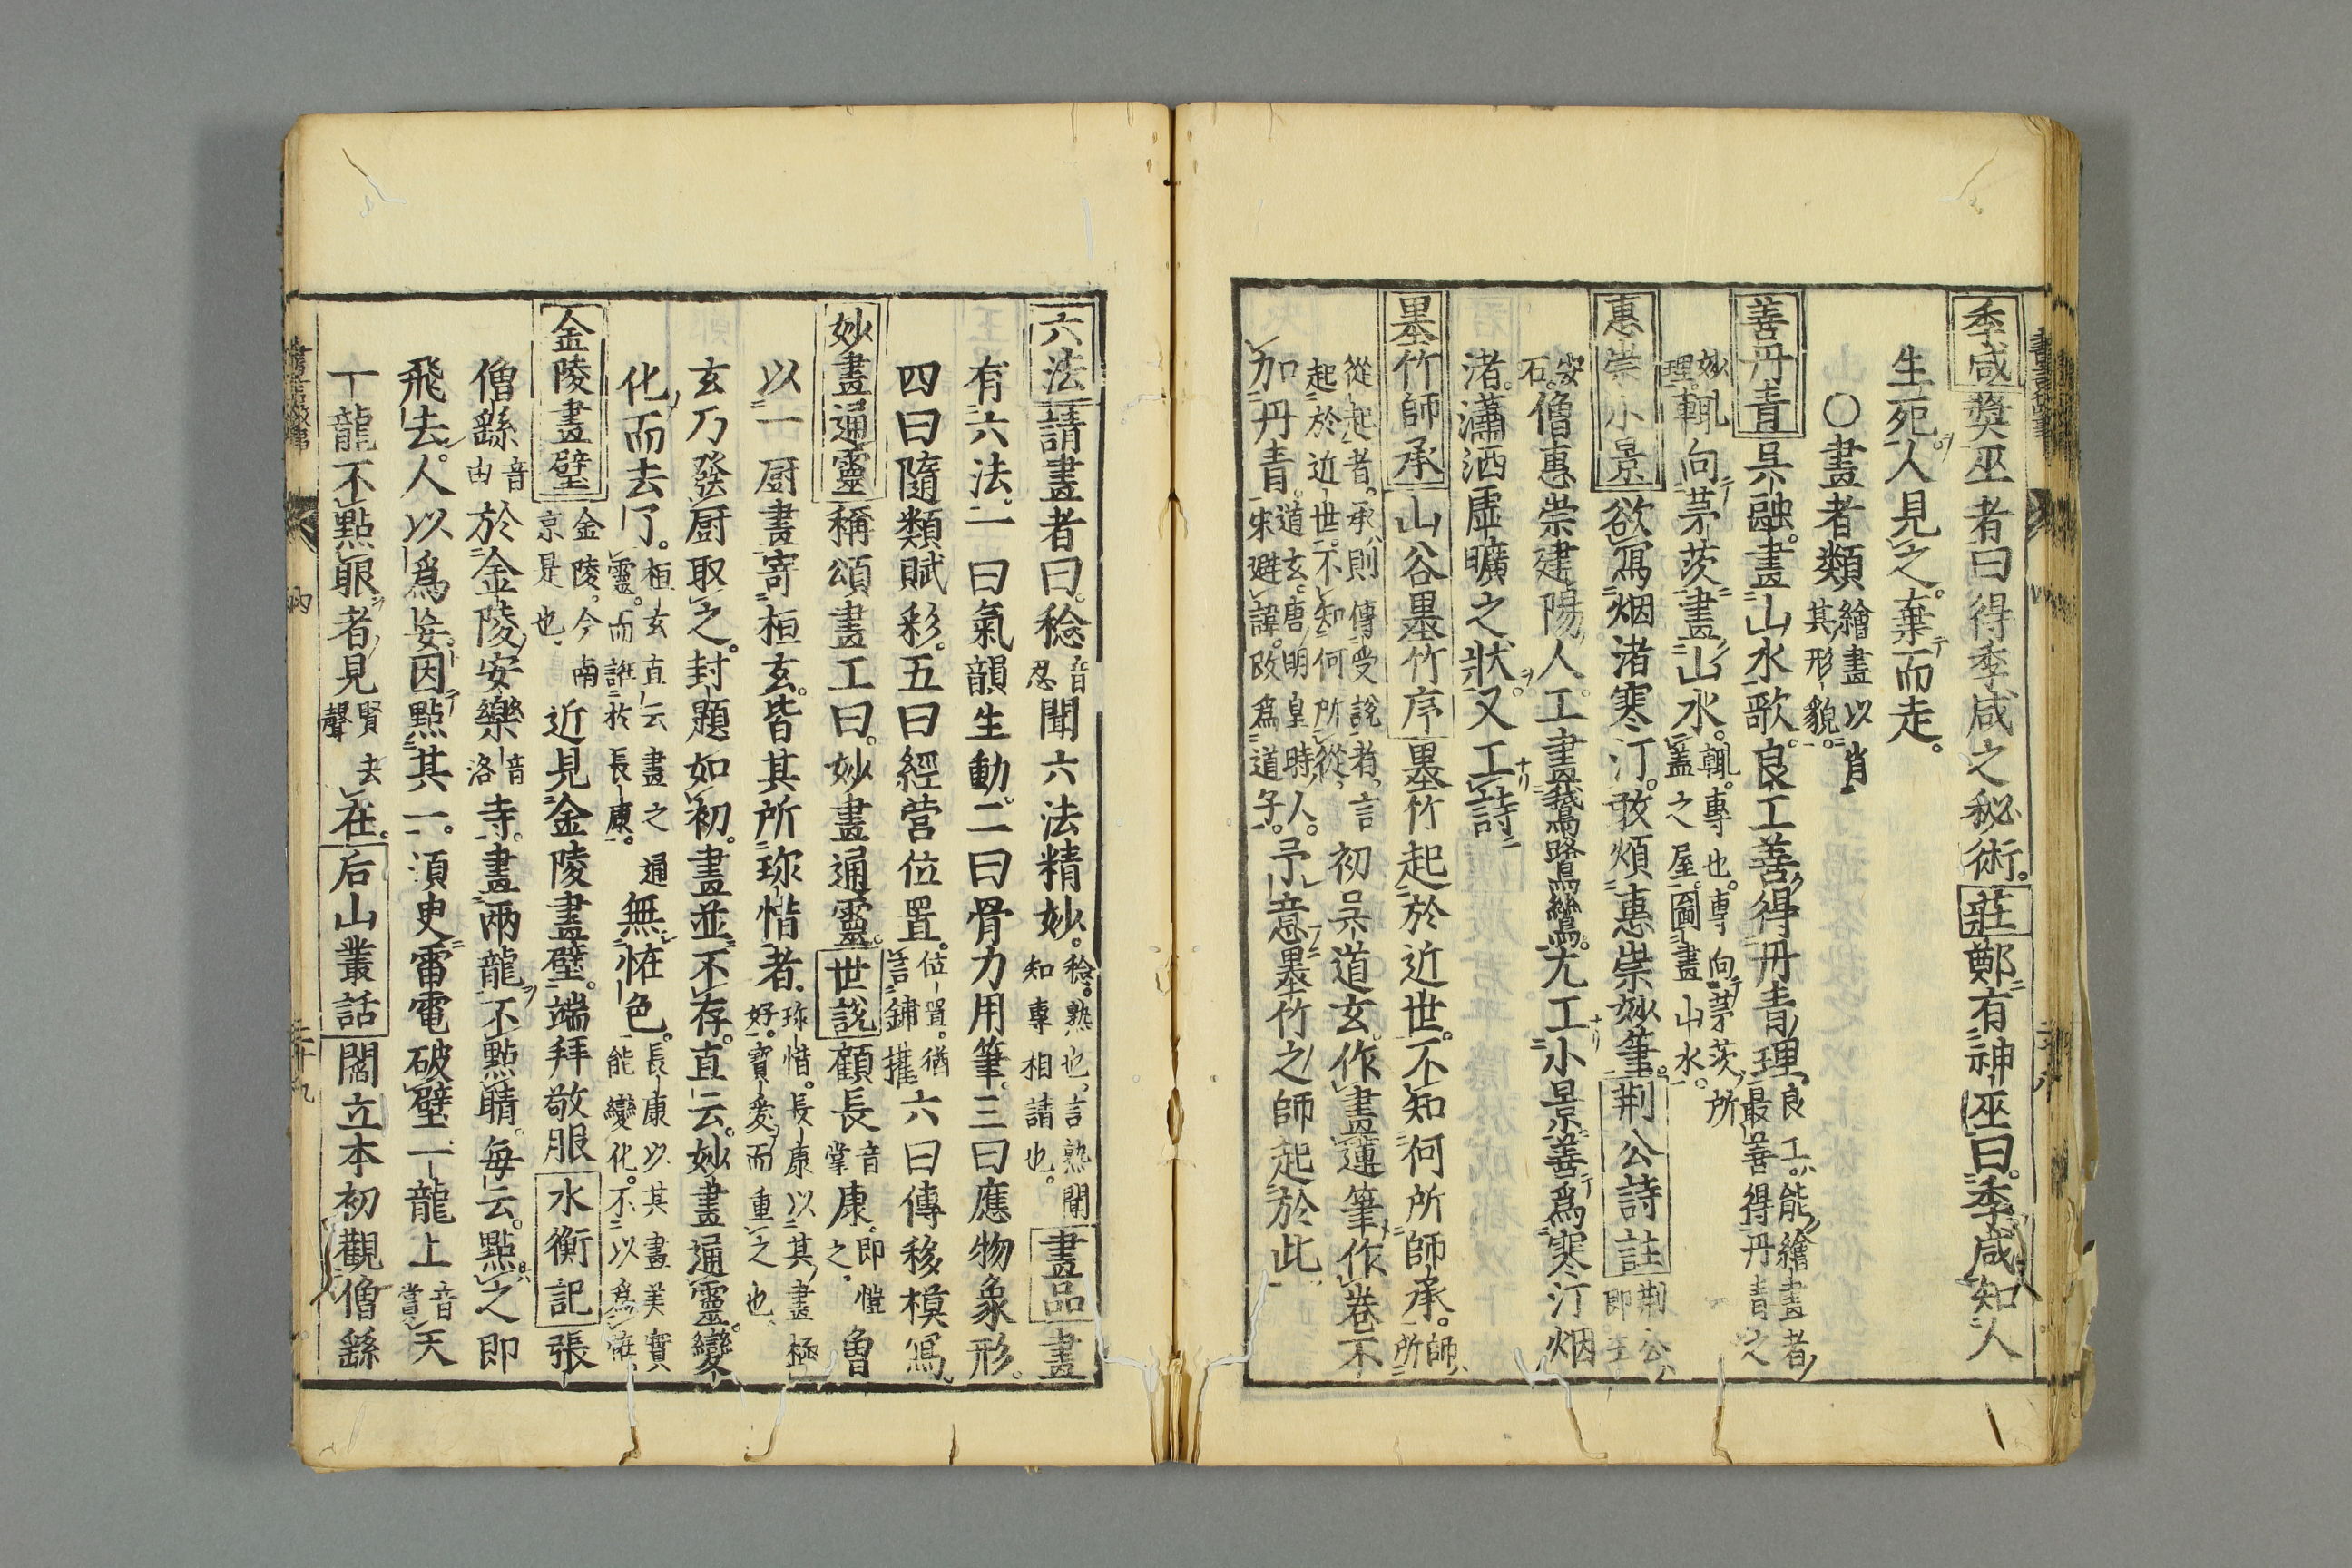 季咸奬巫者曰得季咸之秘術。莊鄭有神巫曰。季咸知人
生死人見之。棄而走。
〇畫者類繪畫以肖其形貌。
善丹青吴融畫山水歌。良工善得丹青理良工能繪畫者最善得丹青之
妙理。輒向茅茨畫山水。輒。專也。專向茅茨所蓋之屋。圖畫山水。
惠崇小景欲寫烟渚寒汀。敢煩惠崇妙筆。荆公詩註荆公即王
安石。僧惠崇建陽人。工畫鵞鷺鷥。尤工小景善為寒汀烟
渚。瀟洒虛曠之狀又工詩
墨竹師承山谷墨竹序墨竹起於近世。不知何所師承。師所
從起者。承則傳受說者。言起於近世。不知何所從初吴道玄。作畫運筆作卷不
加丹青。道玄。唐明皇時人。宋避諱。改爲道子。予意墨竹之師起於此
六法請畫者曰。稔音忍聞六法精妙。稔。熟也。言熟聞知專相請也。畫品畫
有六法。一曰氣韻生動。二曰骨力用筆。三曰應物象形。
四曰隨類賦彩。五曰經营位置。位置。猶言鋪攡六曰傳移模寫。
妙畫通靈稱頌畫工曰。妙畫通靈。世說顧長音掌康。即愷之。魯
以一厨畫寄桓玄。皆其所珎惜者。珎惜。長康以其畫極好。寳愛而重之也
玄乃發厨取之。封題如初。畫並不存。直云。妙畫通靈。變
化而去了。桓玄直云畫之通靈。而誑於長康。無恠色。長康以其畫美實能變化。不以爲恠
金陵畫壁金陵。今南京是也近見金陵畫壁。端拜敬服水衡記張
僧繇音由於金陵安樂音洛寺。畫兩龍不點睛。每云。點之即
飛去。人以爲妄。因點其一。湏史雷電破壁一龍上音賞天
一龍不點眼者見賢去聲在。后山叢話閻立本初觀僧繇